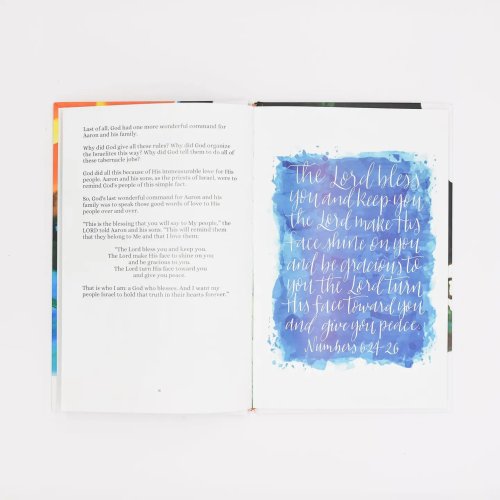 Last of all, God had one more wonderful command for
Aaron and his family.
Why did God give all these rules? Why did God organize
the Israelites this way? Why did God tell them to do all of
these tabernacle jobs?
God did all this because of His immeasurable love for His
people. Aaron and his sons, as the priests of Israel, were to
remind God's people of this simple fact.
So, God's last wonderful command for Aaron and his
family was to speak those good words of love to His
people over and over.
"This is the blessing that you will say to My people," the
LORD told Aaron and his sons. "This will remind them
that they belong to Me and that I love them:
"The Lord bless you and keep you.
The Lord make His face to shine on you
and be gracious to you.
The Lord turn His face toward you
and give you peace.
That is who I am: a God who blesses. And I want my
people Israel to hold that truth in their hearts forever."
The Lord bless
you and keep you
the Lord make His
face shine on you
and be gracious to
you the Lord turn
His face toward you
and give you peace.
Numbers 6:24-26